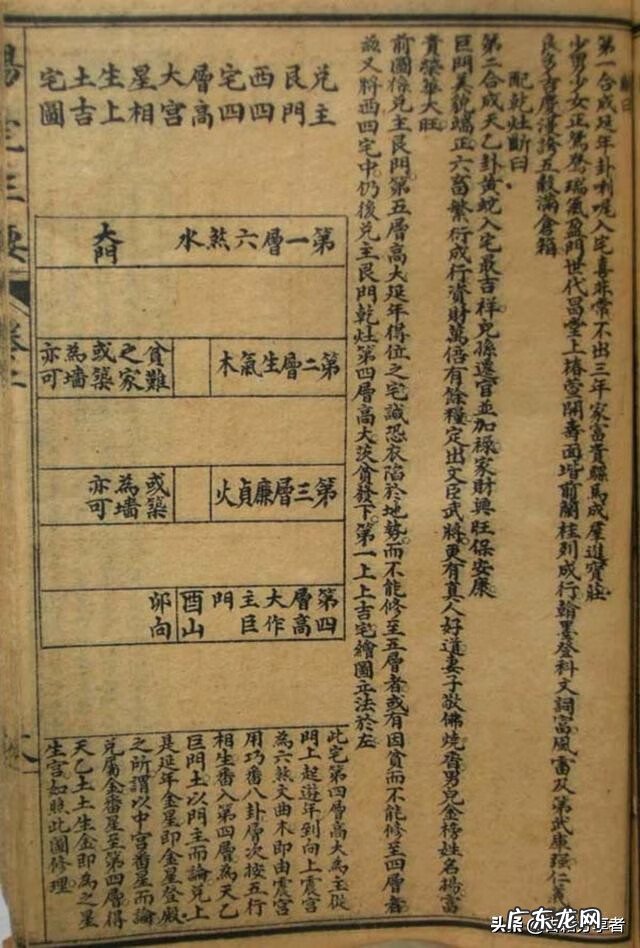 斷曰
第一合成延年卦喇唲入宅喜非常不出三年家富貴騾馬成羣進寶莊
少男少女正鴛鴦瑞氣盈門世代昌堂上椿萱開壽面堦前蘭桂列成行翰墨登科文詞富風雷及第武庫强仁義
良多吉慶漫誇五穀滿倉箱
配乾灶斷曰
第二合成天乙卦黃蛇入宅最吉祥兒孫遷官並加祿家財興旺保安康
巨門美貌端正六畜繁衍成行資財萬倍有餘糧定出文臣武將更有真人好道妻子敬佛燒香男兒金榜姓名揚富
貴榮華大旺
前圖係兌主艮門第五層高大延年得位之宅誠恐衣陷於地勢而不能修至五層者或有因貧而不能修至四層者
故又將西四宅中仍後兌主艮門乾灶第四層高大茨貧發下第一上上吉宅繪圖立法於左
兌主
艮門
西四
宅四
層高
大宮
星相
生上
土吉
宅圖
第一層六煞水
大門
第二層生氣木
貧難之家或築為墻亦可
第三層廉貞火
或築為墻亦可
第四層高大作主巨門
酉山
卯向
此宅第四層高大為主從
門上起遊年到向上震宮
為六煞文曲木即由震宮
用巧番八卦層次按五行
相生番入第四層為天乙
巨門土以門主而論兌上
是延年金星即金星登殿
之所謂以中宮番星而論
兌屬金番星至第四層得
天乙土土生金即為之星
生宮如照此圖修理
陽宅三要
卷二
头条
广东龙网